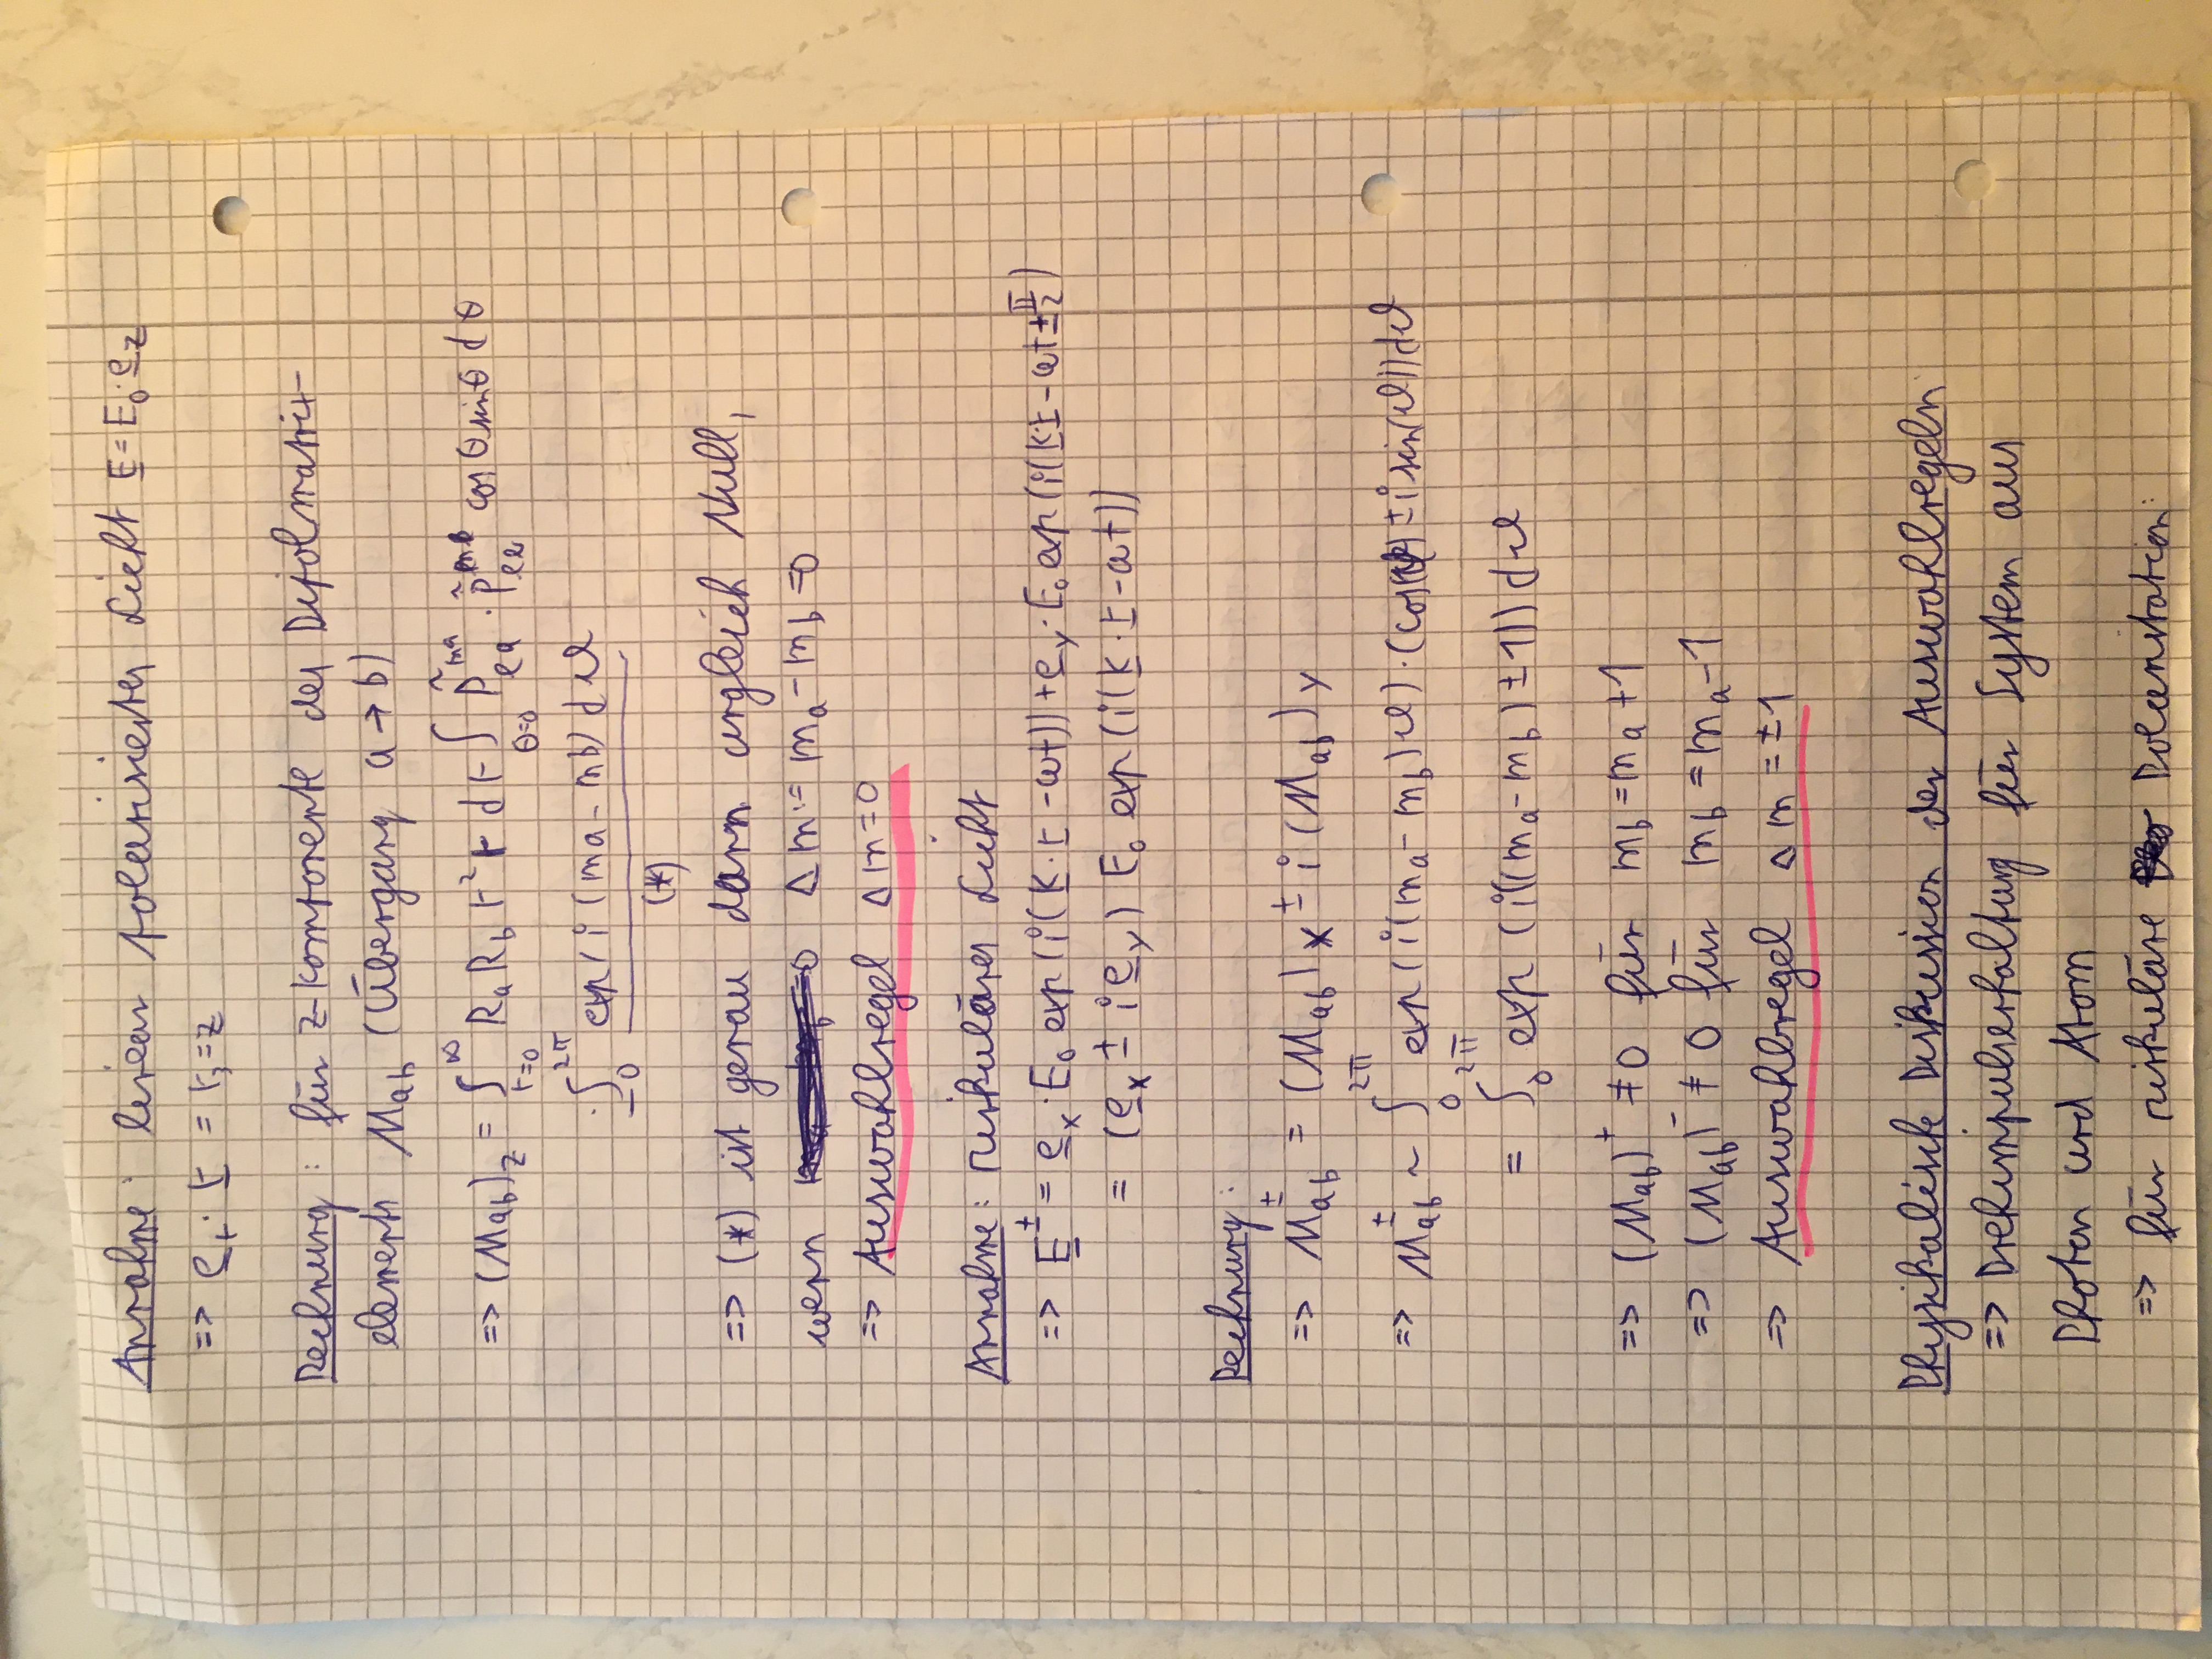 Annahme: linear polarisiertes Licht E = E₀·e_z
=> e_r · r = r₃ = z
Rechnung: für z-Komponente des Dipolmatrix-
elements M_ab (Übergang a → b)
=> (M_ab)_z = ∫_{r=0}^{∞} R_a R_b r² r dr ∫_{θ=0} P̃_{la}^{ma} · P̃_{le}^{mb} cos θ sin θ d θ
· ∫_0^{2π} exp(i(ma - mb) dφ
(*)
=> (*) ist genau dann ungleich Null,
wenn Δm := m_a - m_b = 0
=> Auswahlregel Δm = 0
Annahme: zirkuläres Licht
=> E^± = e_x · E₀ exp(i(k·r - ωt)) + e_y · E₀ exp(i(k·r - ωt ± π/2)
= (e_x ± i e_y) E₀ exp(i(k·r - ωt))
Rechnung:
=> M_ab^± = (M_ab)_x ± i (M_ab)_y
=> M_ab^± ~ ∫_0^{2π} exp(i(m_a - m_b)φ) · (cos(φ) ± i sin(φ)) dφ
= ∫_0^{2π} exp(i((m_a - m_b) ± 1)) dφ
=> (M_ab)^+ ≠ 0 für m_b = m_a + 1
=> (M_ab)^- ≠ 0 für m_b = m_a - 1
=> Auswahlregel Δm = ±1
Physikalische Diskussion der Auswahlregeln
=> Drehimpulserhaltung für System aus
Photon und Atom
=> für zirkuläre Polarisation: